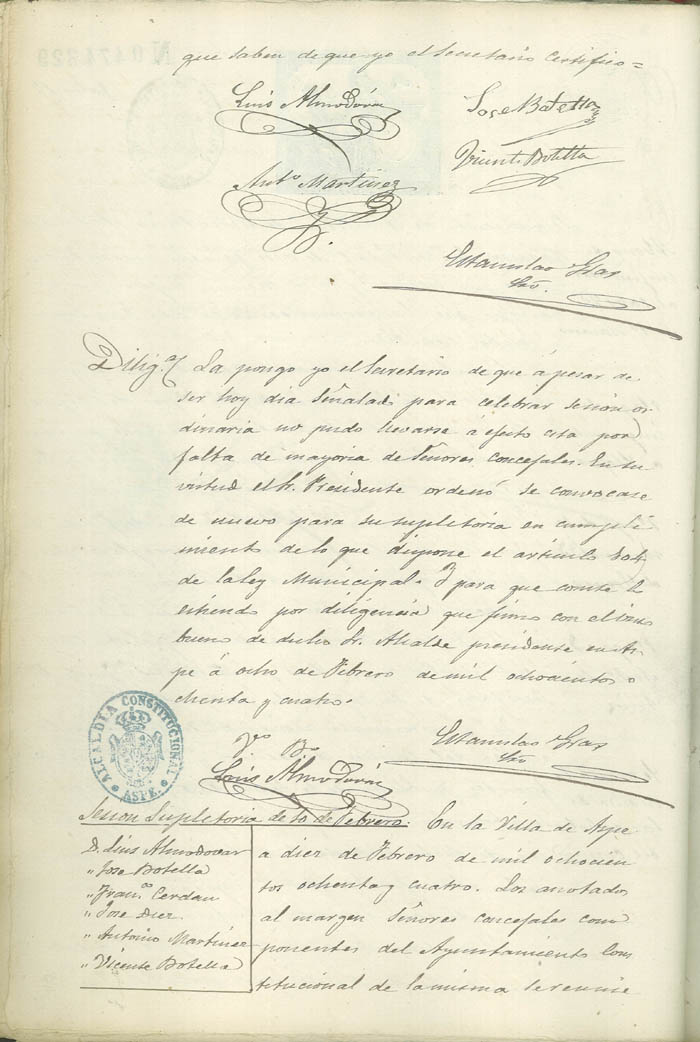 que saben de que yo el Secretario Certifico =
Luis Almodóvar
José Botella
Vicente Botella
Antº Martinez
Estanislao Gras
Srio.
Dilig.ª La pongo yo el Secretario de que á pesar de
ser hoy dia señalado para celebrar sesion or
dinaria no pudo llevarse á efecto esta por
falta de mayoria de Señores concejales. En su
virtud el Sr. Presidente ordenó se convocase
de nuevo para su supletoria en cumpli
miento de lo que dispone el articulo 104
de la ley Municipal. Y para que conste lo
estiendo por diligencia que firmo con el visto
bueno de dicho Sr. Alcalde presidente en As
pe á ocho de Febrero de mil ochocientos o
chenta y cuatro.
ALCALDÍA CONSTITUCIONAL
* ASPE. *
Vº Bº
Luis Almodóvar
Estanislao Gras
Srio
Sesion Supletoria de 10 de Febrero. En la Villa de Aspe
a diez de Febrero de mil ochocien
tos ochenta y cuatro. Los anotados
al margen Señores concejales com
ponentes del Ayuntamiento Cons
titucional de la misma se reunie
D. Luis Almodovar
" Jose Botella
" Fran.co Cerdan
" Jose Diez
" Antonio Martinez
" Vicente Botella